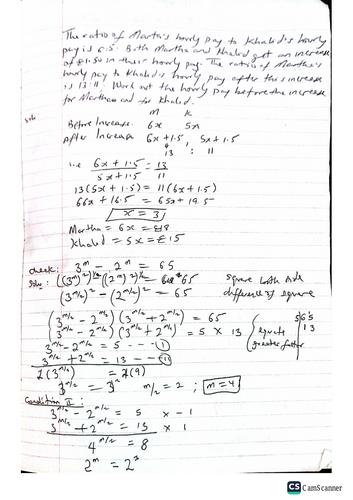 The ratio of Martha's hourly pay to Khaled's hourly
pay is 6:5. Both Martha and Khaled get an increase
of £1.50 in their hourly pay. The ratio of Martha's
hourly pay to Khaled's hourly pay after this increase
is 13:11. Work out the hourly pay before the increase
for Martha and for Khaled.
Soln M K
Before Increase 6x 5x
After Increase 6x + 1.5, 5x + 1.5
13 : 11
i.e 6x + 1.5 / 5x + 1.5 = 13 / 11
13(5x + 1.5) = 11(6x + 1.5)
66x + 16.5 = 65x + 19.5
x = 3
Martha = 6x = £18
Khaled = 5x = £15
3^m - 2^m = 65
Soln: ((3^m)^2)^1/2 - ((2^m)^2)^1/2 = 65
(3^m/2)^2 - (2^m/2)^2 = 65
Square both side
difference of square
(3^m/2 - 2^m/2)(3^m/2 + 2^m/2) = 65
(3^m/2 - 2^m/2)(3^m/2 + 2^m/2) = 5 × 13
equate
greater factor
3^m/2 - 2^m/2 = 5 --- (i)
3^m/2 + 2^m/2 = 13 --- (ii)
2(3^m/2) = 2(9)
3^m/2 = 3^2 m/2 = 2; m = 4
Condition II:
3^m/2 - 2^m/2 = 5 × -1
3^m/2 + 2^m/2 = 13 × 1
4^m/2 = 8
2^m = 2^3
CS CamScanner